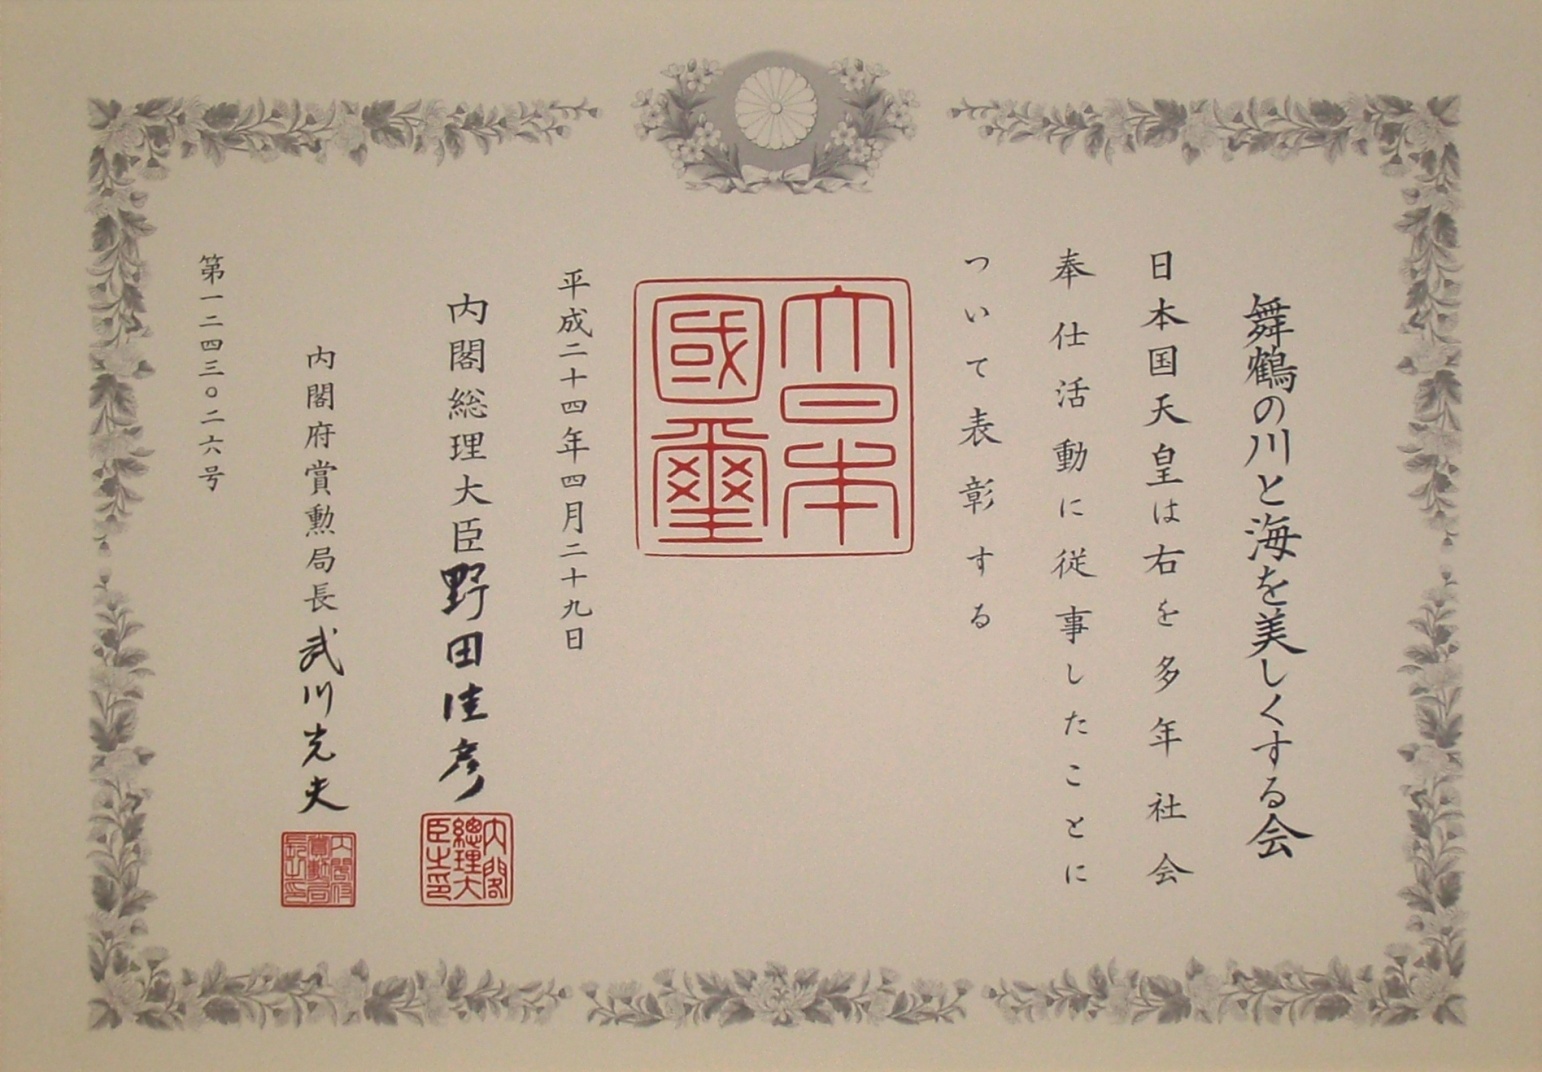 舞鶴の川と海を美しくする会
日本国天皇は右を多年社会
奉仕活動に従事したことに
ついて表彰する
大日本
國璽
平成二十四年四月二十九日
内閣総理大臣野田佳彦
内閣
總理大
臣之印
内閣府賞勲局長武川光夫
内閣府
賞勲局
長之印
第一二四三〇二六号